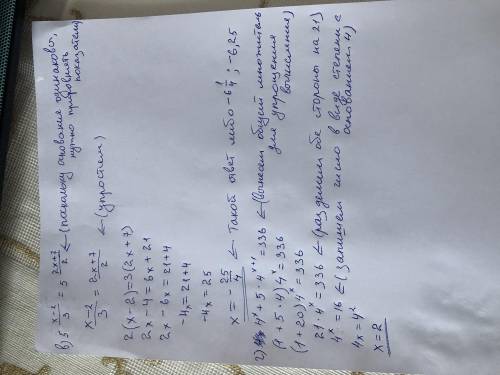 в) 5^((x-2)/3) = 5^((2x+7)/2) ← (паскольку аснования одинаковы,
нужно прировнять
показатели)
(x-2)/3 = (2x+7)/2 ← (упростим)
2(x-2)=3(2x+7)
2x-4=6x+21
2x-6x=21+4
-4x=21+4
-4x=25
x=-25/4 ← Такой ответ либо -6 1/4 ; -6,25
2) 4^x+5·4^(x+1)=336 ← (Вынесем общий множитель
для упрощения
вычисления)
(1+5·4)4^x=336
(1+20)4^x=336
21·4^x=336 ← (разделим обе стороны на 21)
4^x=16 ← (запишем число в виде степени с
основанием 4)
4x=4²
x=2